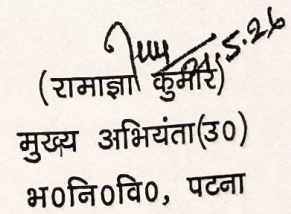 21.5.26
(रामाज्ञा कुमार)
मुख्य अभियंता(उ०)
भ०नि०वि०, पटना